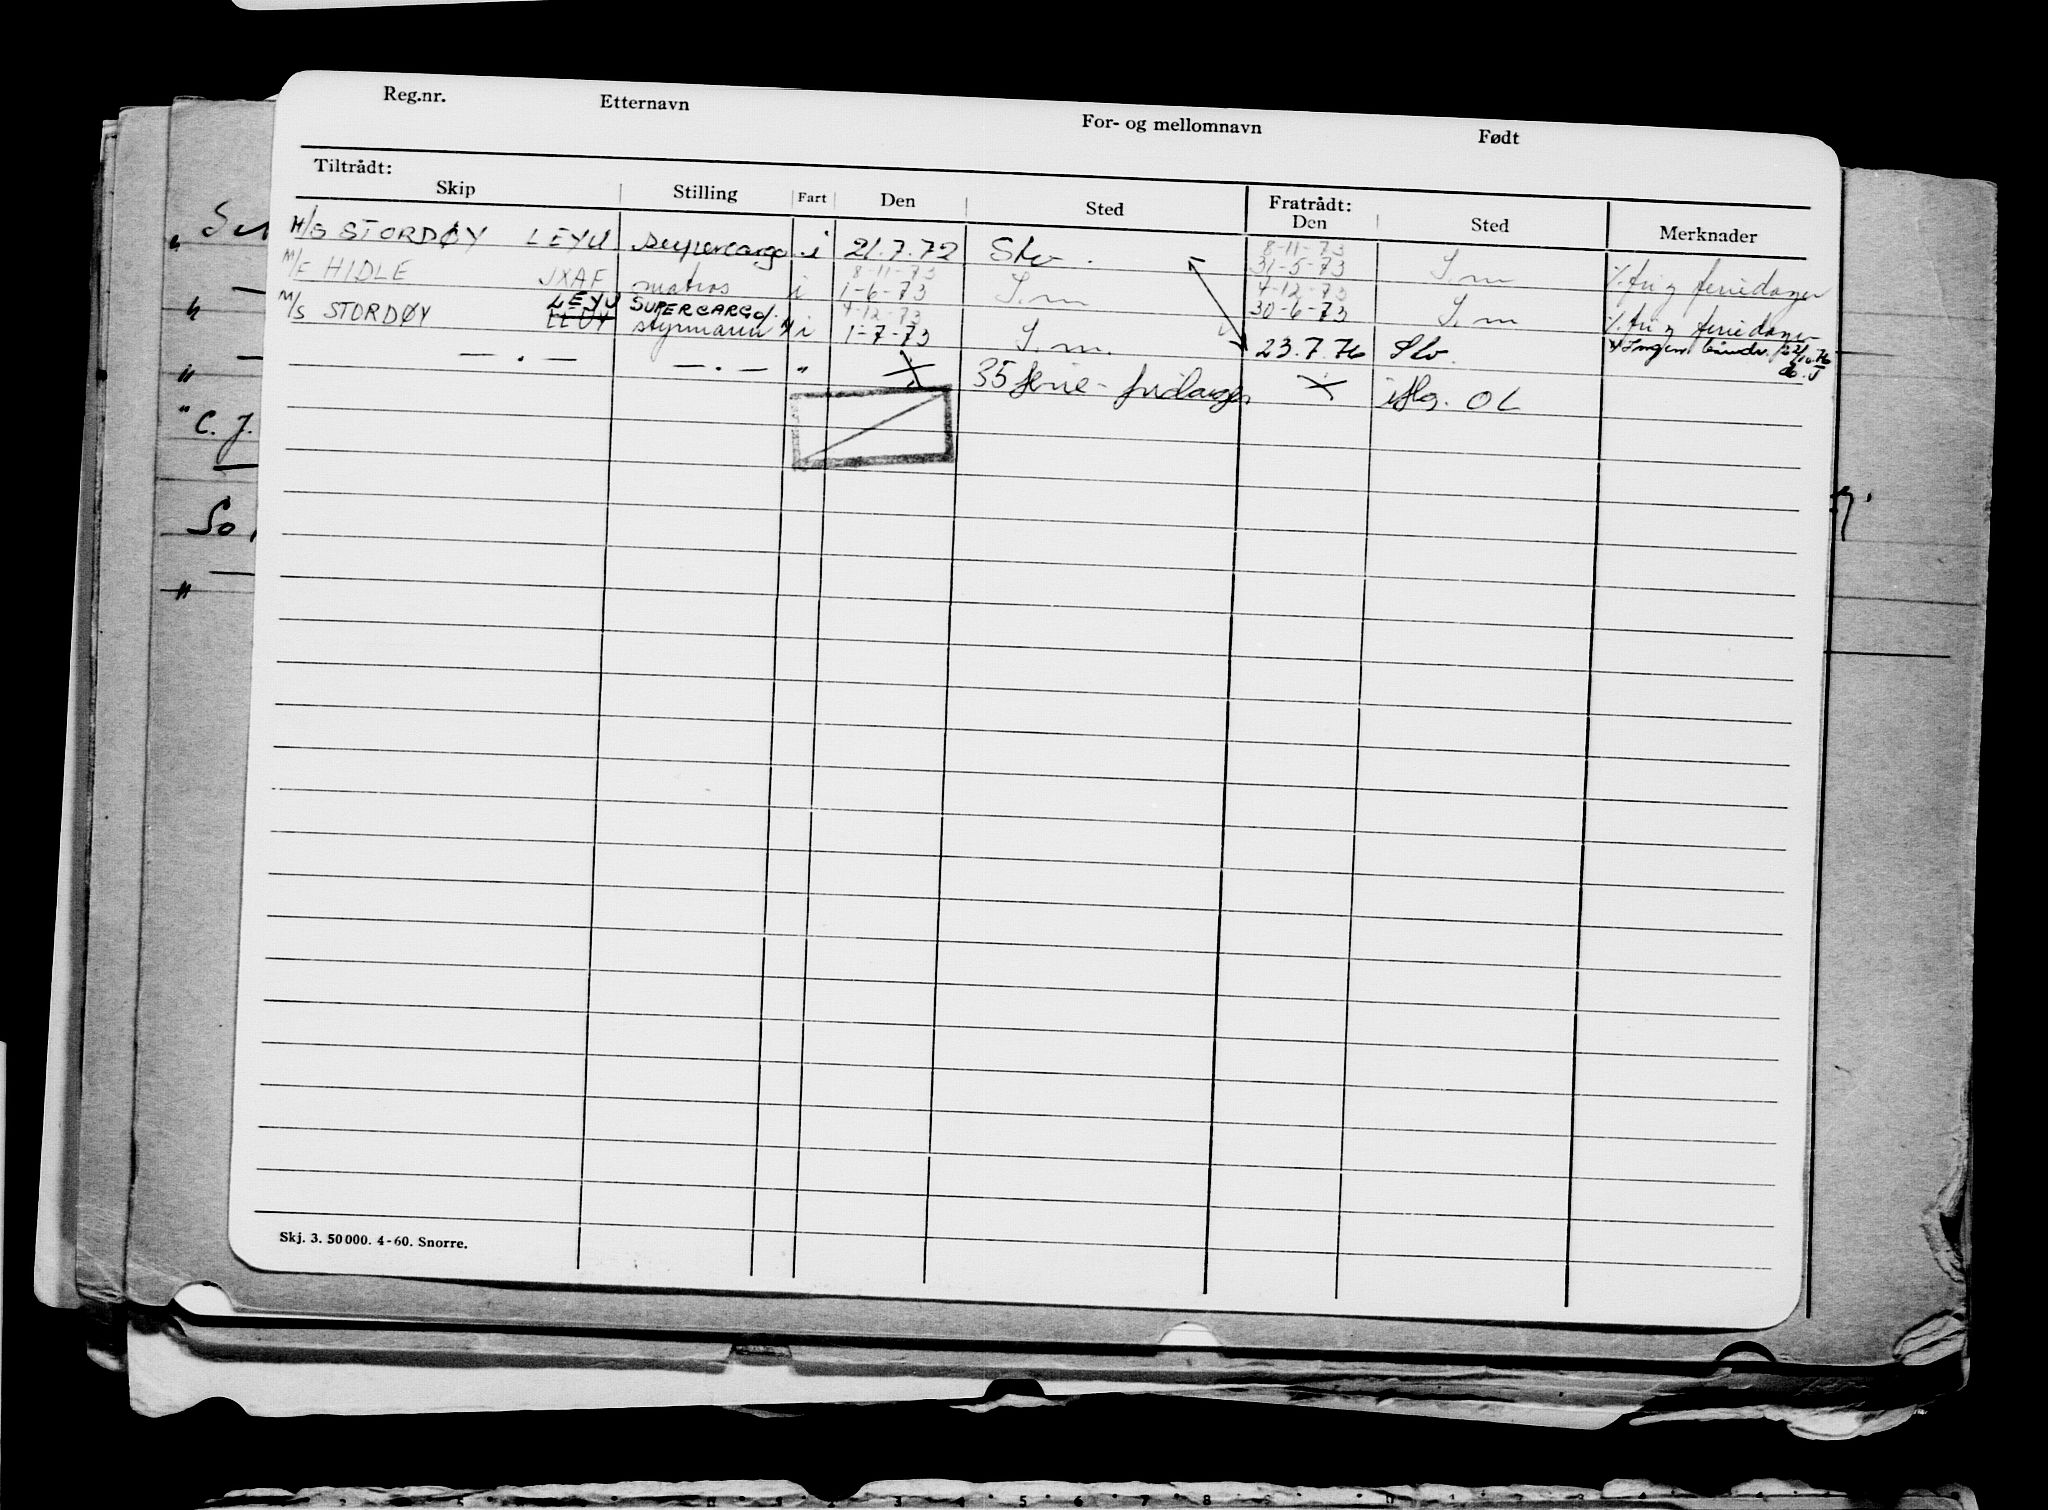 Reg.nr. Etternavn For- og mellomnavn Født
Tiltrådt: Fratrådt:
Skip Stilling Fart Den Sted Den Sted Merknader
8-11-73
M/S STORDØY LEYU supercargo i 21.7.72 Slv. 31-5-73 S.m % fri og feriedager
8-11-73 4-12-73
M/F HIDLE JXAF matros i 1-6-73 S.m 30-6-73 S.m % fri og feriedager
LEYU SUPERCARGO/ 4-12-73
M/S STORDØY styrmann i 1-7-73 S.m. 23.7.76 Slv.
— . — — . — " X 35 ferie- fridager X iflg. OL
C. J.
So
Skj. 3. 50000. 4-60. Snorre.